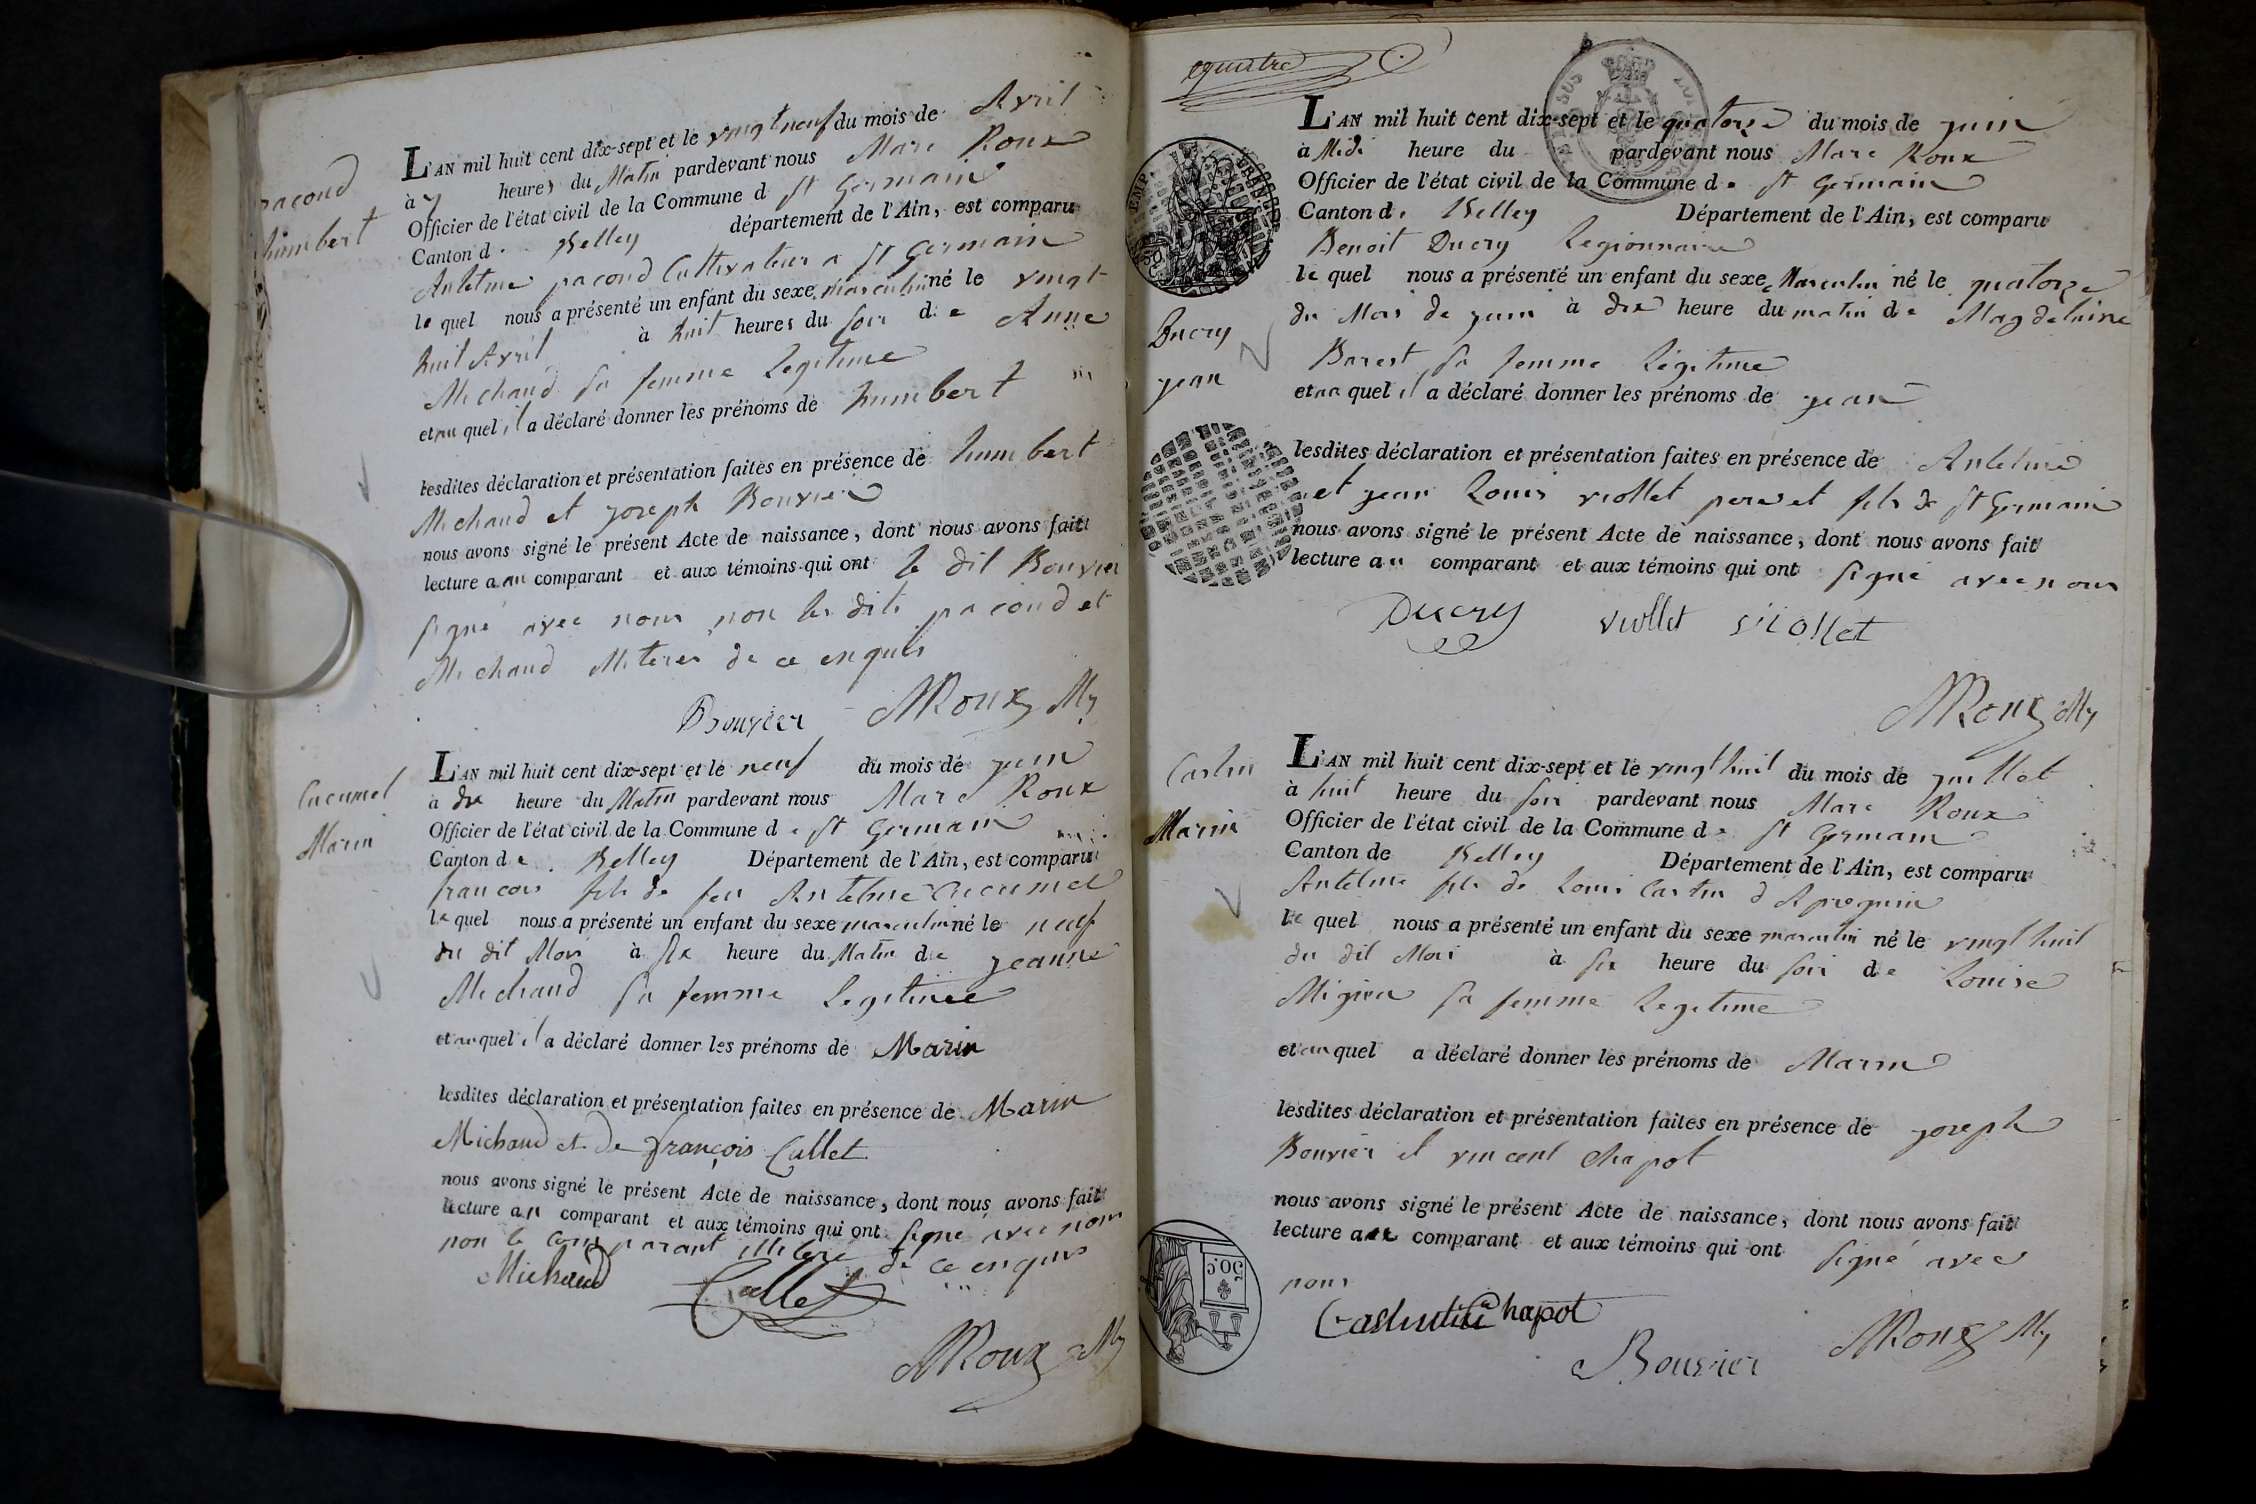 pacond
humbert
L'AN mil huit cent dix-sept et le vingt neuf du mois de Avril
à 7 heures du Matin pardevant nous Marc Roux
Officier de l'état civil de la Commune de St Germain
Canton de Belley département de l'Ain, est comparu
Antelme pacond Cultivateur a St Germain
le quel nous a présenté un enfant du sexe masculin né le vingt
huit Avril à huit heures du soir de Anne
Michaud sa femme legitime
et au quel il a déclaré donner les prénoms de humbert
lesdites déclaration et présentation faites en présence de humbert
Michaud et joseph Bouvier
nous avons signé le présent Acte de naissance, dont nous avons fait
lecture au comparant et aux témoins qui ont le dit Bouvier
signé avec nous non les dits pacond et
Michaud de ce enquis
Bouvier MRoux My
Cucumel
Marin
L'AN mil huit cent dix-sept et le neuf du mois de juin
à dix heure du Matin pardevant nous Marc Roux
Officier de l'état civil de la Commune de St Germain
Canton de Belley Département de l'Ain, est comparu
francois fils de feu Antelme Cucumel
le quel nous a présenté un enfant du sexe masculin né le neuf
du dit Mois à six heure du Matin de jeanne
Michaud sa femme Legitime
et au quel il a déclaré donner les prénoms de Marin
lesdites déclaration et présentation faites en présence de Marin
Michaud et de françois Callet
nous avons signé le présent Acte de naissance, dont nous avons fait
lecture au comparant et aux témoins qui ont signé avec nous
non le comparant de ce enquis
Michaud Callet
MRoux My
quatre
L'AN mil huit cent dix-sept et le quatorze du mois de juin
à Midi heure du pardevant nous Marc Roux
Officier de l'état civil de la Commune de St Germain
Canton de Belley Département de l'Ain, est comparu
Benoit Ducry Legionnaire
le quel nous a présenté un enfant du sexe Masculin né le quatorze
du Mois de juin à dix heure du matin de Magdelaine
Ducry
jean
Barest sa femme Légitime
et au quel il a déclaré donner les prénoms de jean
lesdites déclaration et présentation faites en présence de Antelme
et jean Louis viollet pere et fils de St Germain
nous avons signé le présent Acte de naissance, dont nous avons fait
lecture au comparant et aux témoins qui ont signé avec nous
Ducry viollet viollet
MRoux My
Castin
Marin
L'AN mil huit cent dix-sept et le vingt huit du mois de juillet
à huit heure du soir pardevant nous Marc Roux
Officier de l'état civil de la Commune de St Germain
Canton de Belley Département de l'Ain, est comparu
Antelme fils de Louis Castin d Apregnin
le quel nous a présenté un enfant du sexe masculin né le vingt huit
du dit Mois à six heure du soir de Louise
sa femme Legitime
et au quel a déclaré donner les prénoms de Marin
lesdites déclaration et présentation faites en présence de joseph
Bouvier et vincent Chapot
nous avons signé le présent Acte de naissance, dont nous avons fait
lecture au comparant et aux témoins qui ont signé avec
nous
50.C
Chapot
Bouvier MRoux My